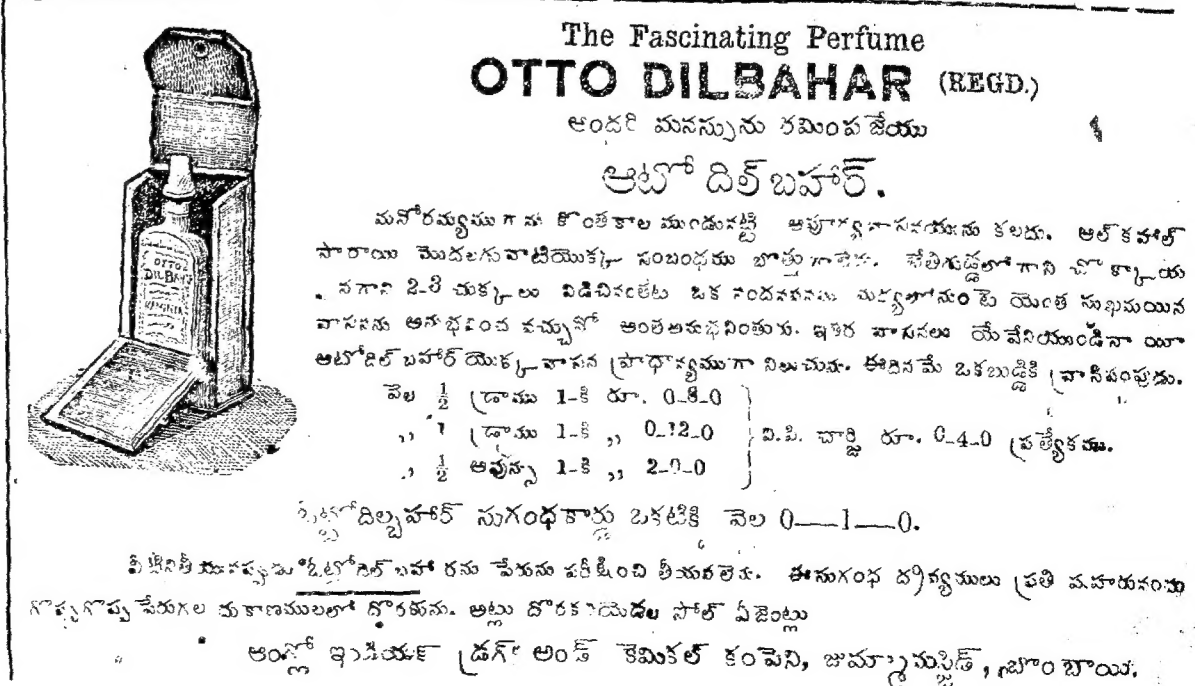 The Fascinating Perfume
OTTO DILBAHAR (REGD.)
అందరి మనస్సును రమింపజేయు
ఆటో దిల్ బహార్.
మనోరమ్యముగాను కొంతకాల ముండునట్టి అపూర్వవాసనయును కలదు. ఆల్ కహాల్
సారాయి మొదలగువాటియొక్క సంబంధము బొత్తుగాలేదు. చేతిగుడ్డలోగాని చొక్కాయ
నగాని 2-3 చుక్కలు విడిచినంతట ఒక నందనవనము మధ్యలోనుంటె యెంత సుఖమయిన
వాసనను అనుభవించ వచ్చునో అంతఅనుభవింతురు. ఇతర వాసనలు యేవేనియుండినా యీ
ఆటోదిల్ బహార్ యొక్క వాసన ప్రాధాన్యముగా నిలుచును. ఈదినమే ఒకబుడ్డికి వ్రాసిపంపుడు.
వెల ½ డ్రాము 1-కి రూ. 0-8-0
,, 1 డ్రాము 1-కి ,, 0-12-0 వి.పి. చార్జి రూ. 0-4-0 ప్రత్యేకము.
,, ½ ఆవున్సు 1-కి ,, 2-0-0
ఓట్టోదిల్బహార్ సుగంధకార్డు ఒకటికి వెల 0—1—0.
ఓటోదిల్ బహారను పేరును పరీక్షించి తీయవలెను. ఈసుగంధ ద్రవ్యములు ప్రతి
గొప్పగొప్ప పేరుగల దుకాణములలో దొరకును. అట్లు దొరకనియెడల సోల్ ఏజెంట్లు
ఆంగ్లో ఇండియన్ డ్రగ్ అండ్ కెమికల్ కంపెని, జుమ్మామస్జిడ్, బొంబాయి.
OTTO
DILBAHAR